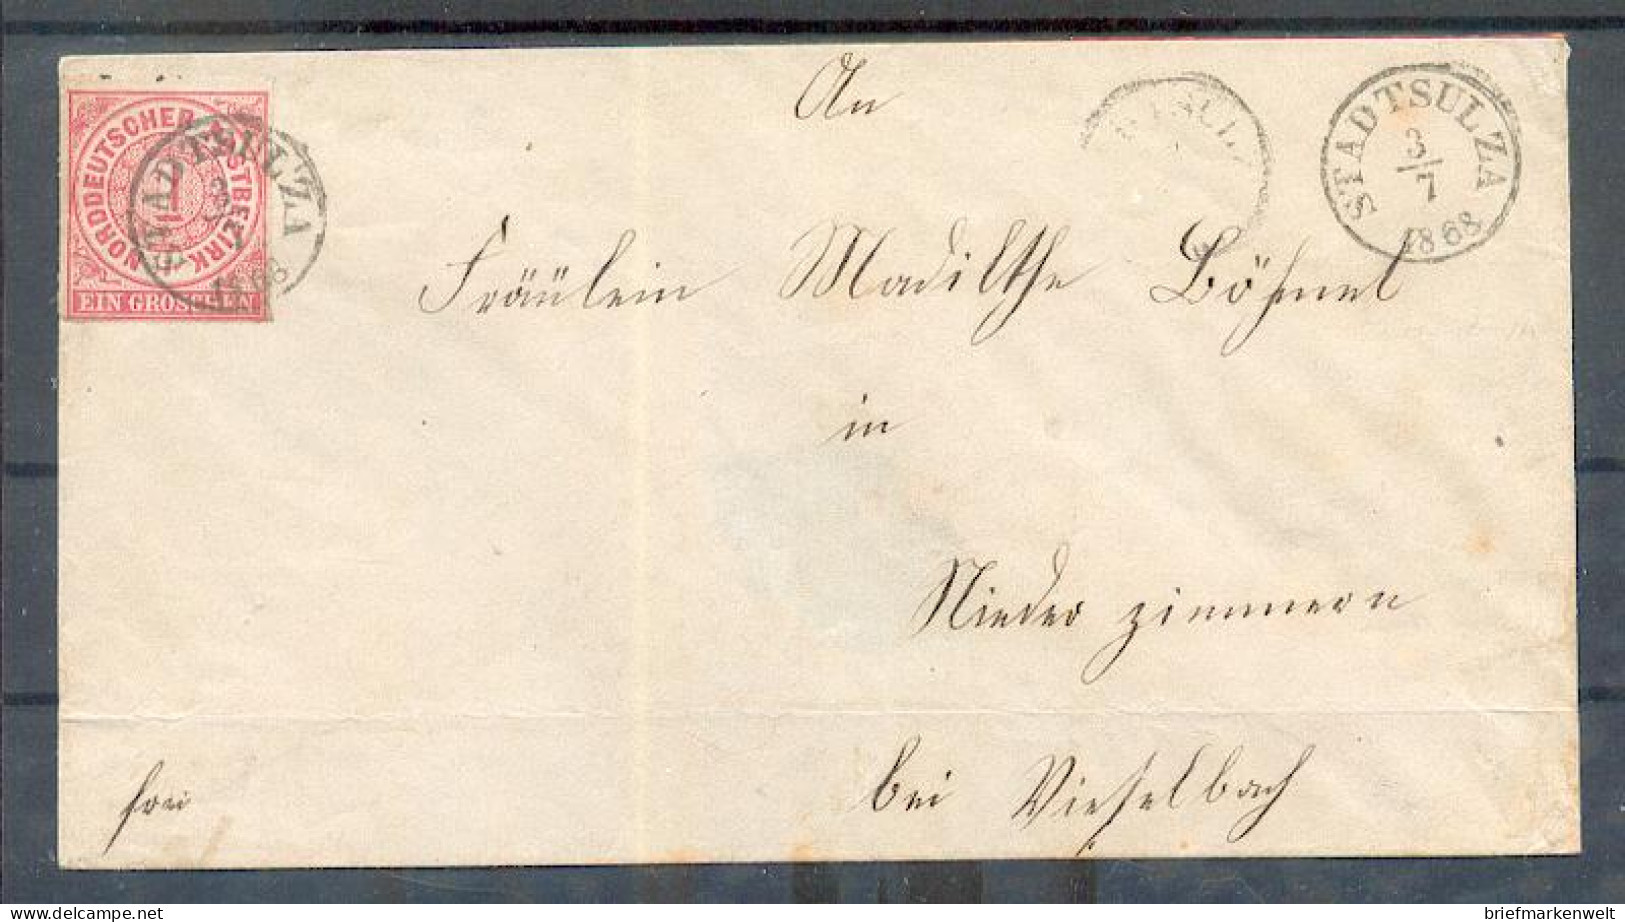 An
NORDDEUTSCHER POSTBEZIRK
1
EIN GROSCHEN
STADTSULZA
3/7
1868
STADTSULZA
3/7
1868
Fräulein Madilthe Böhmel
in
Nieder zimmern
bei Vieselbach
frei
delcampe.net
briefmarkenwelt